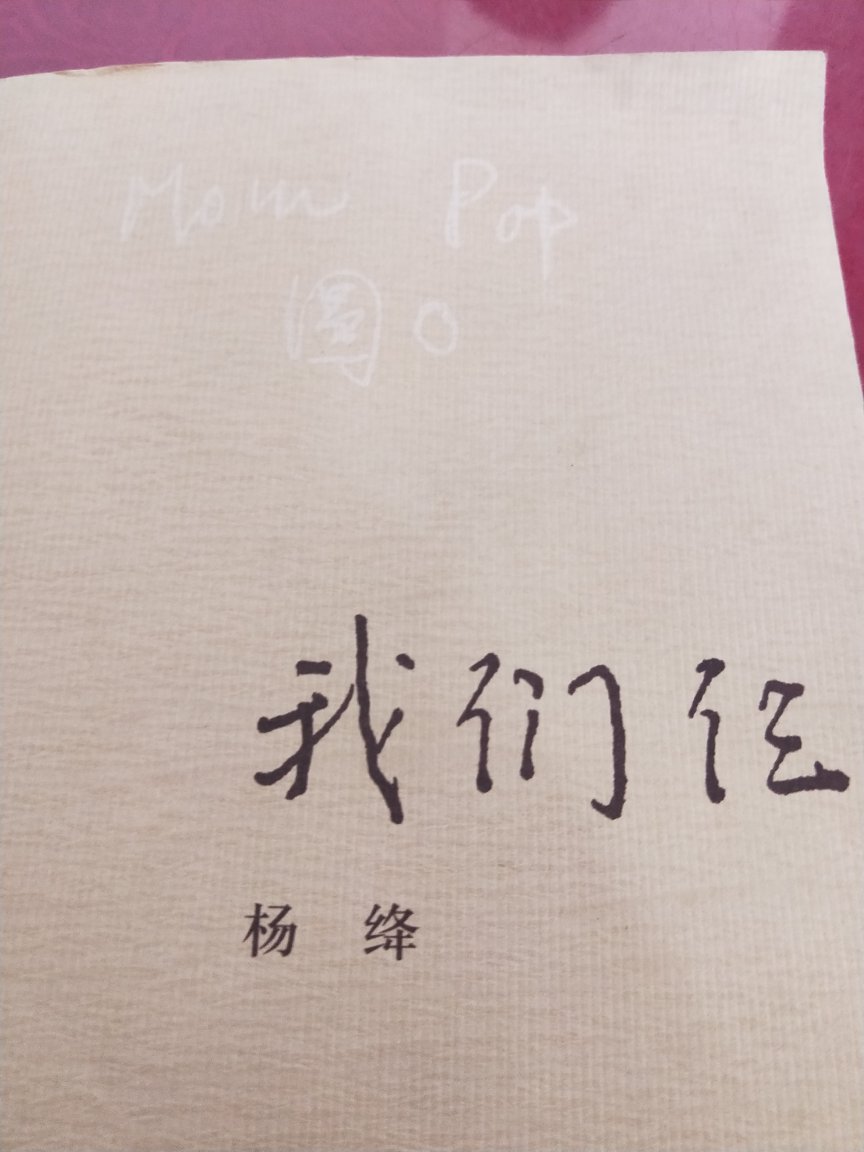 Mom Pop
圓〇
我们仨
杨绛